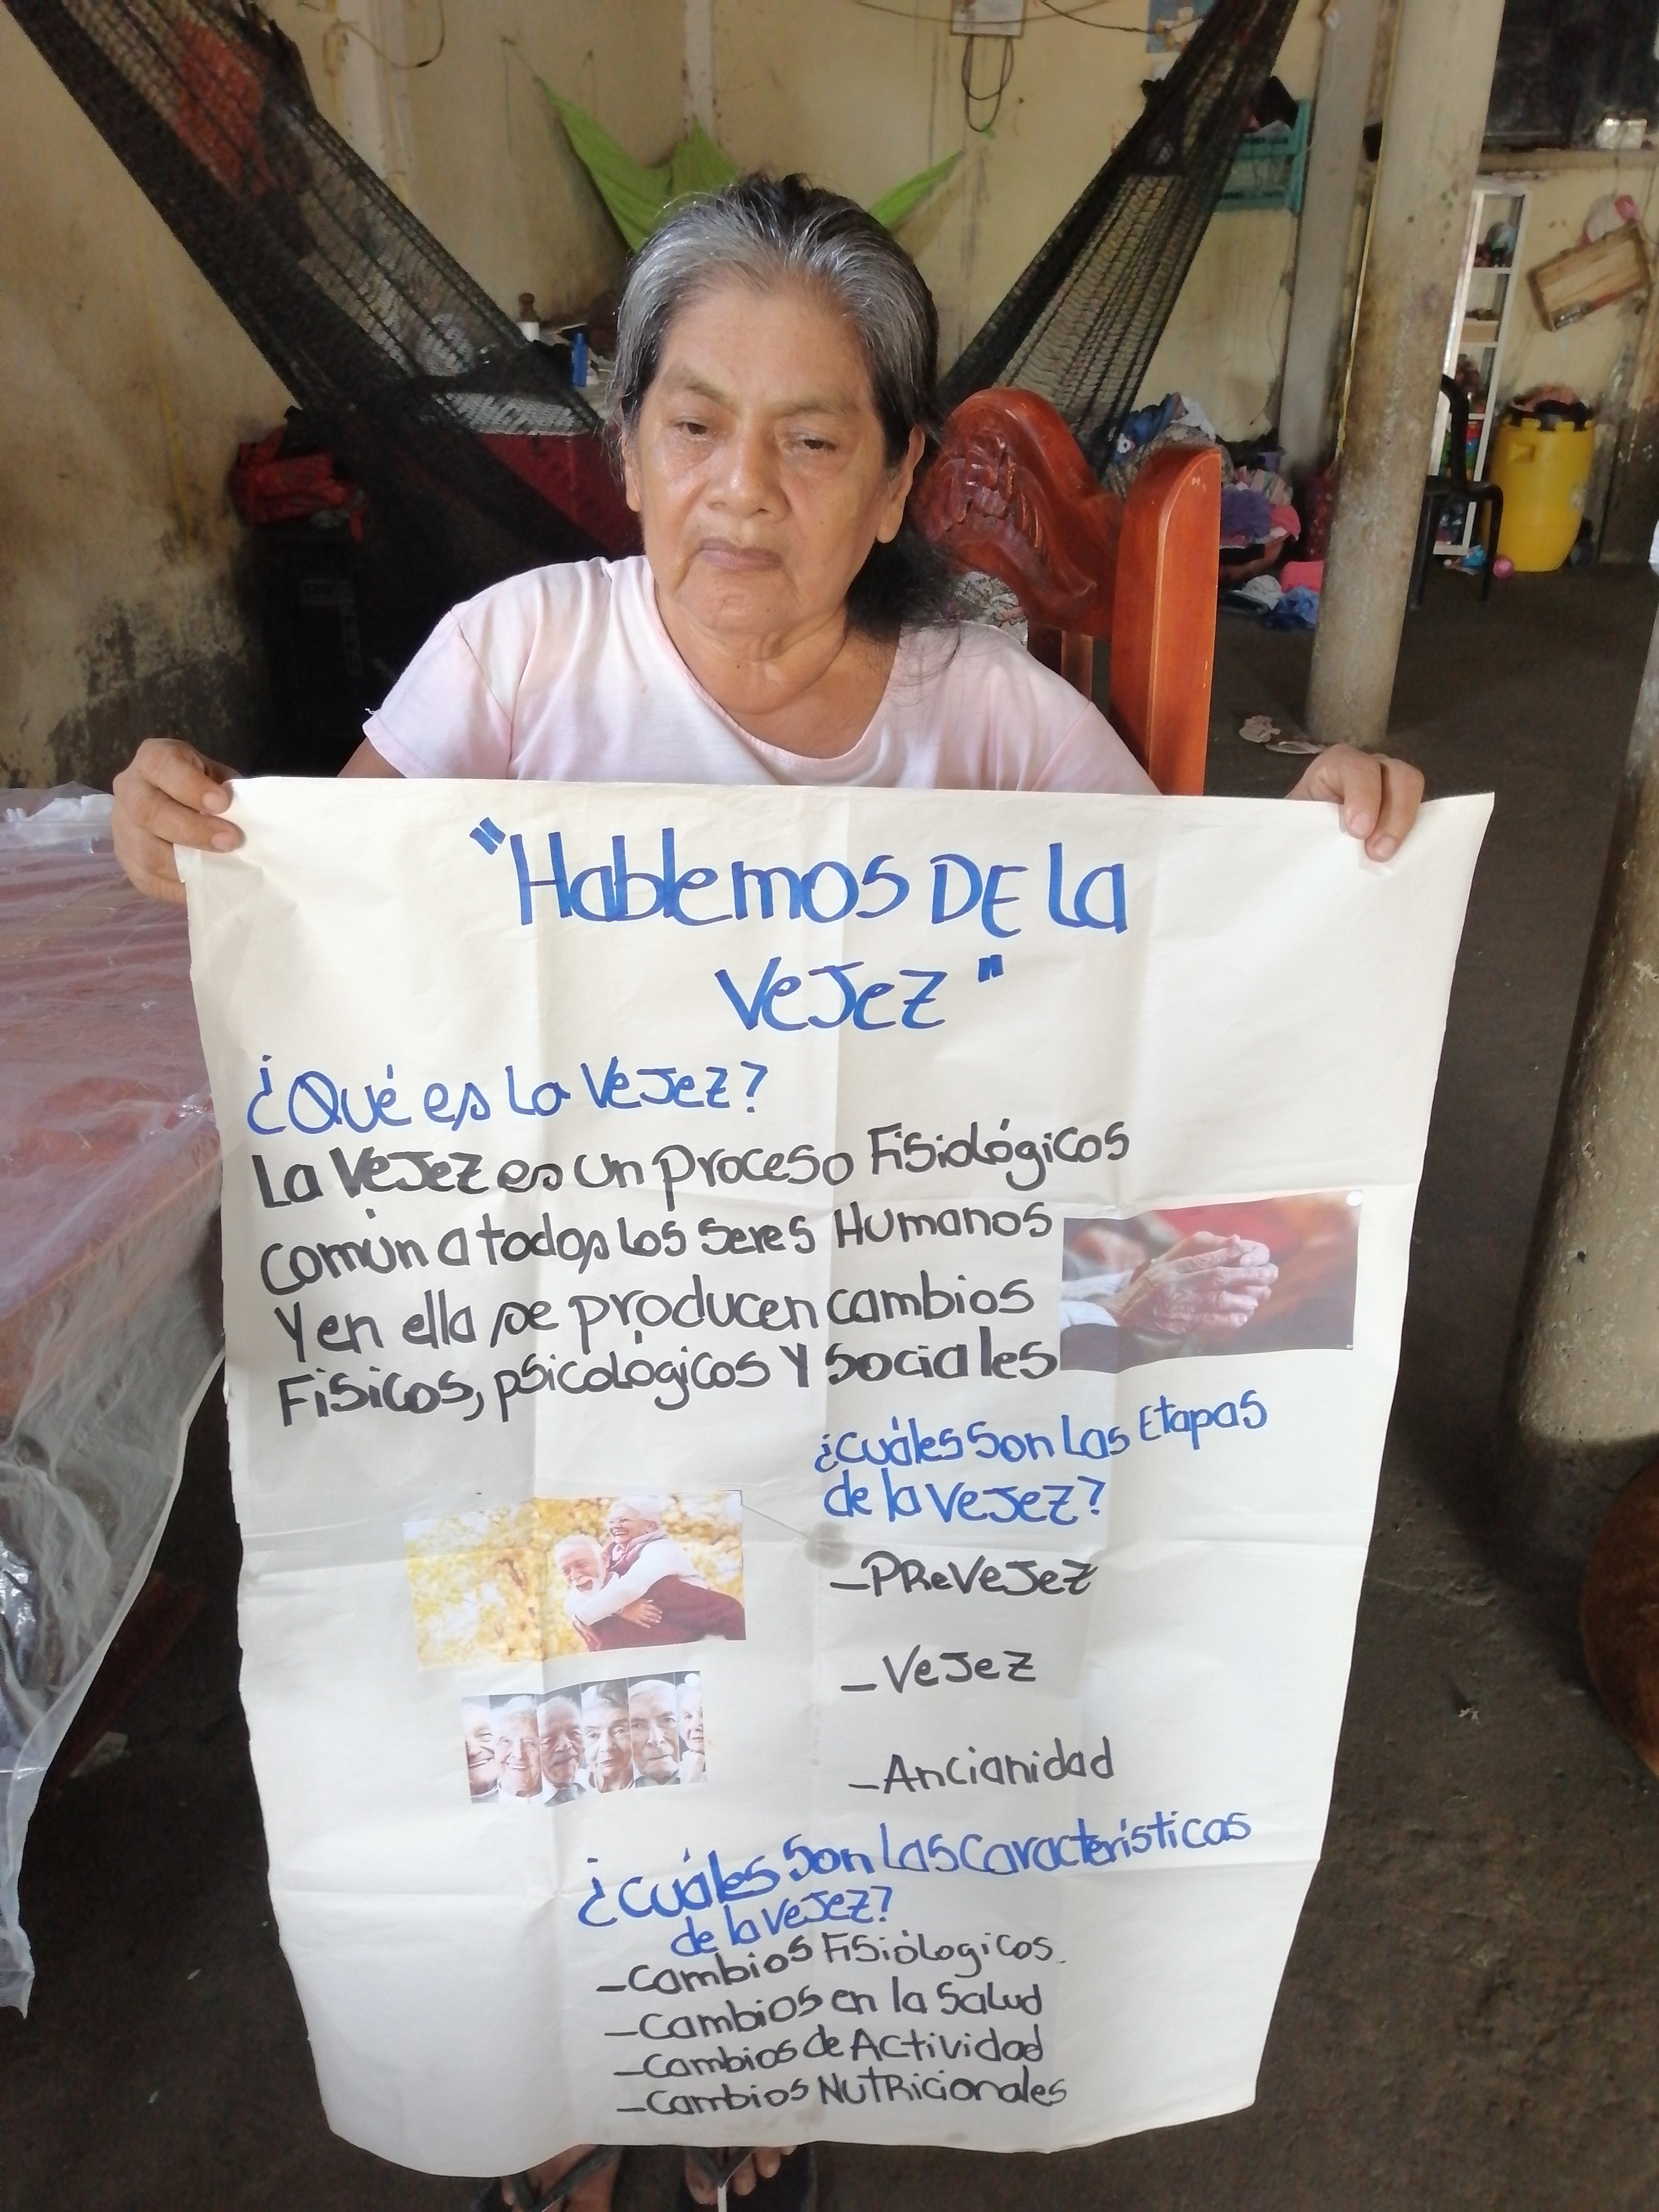 "Hablemos DE la
Vejez"
¿Qué es la Vejez?
La Vejez es un proceso Fisiológicos
común a todos los seres Humanos
Y en ella se producen cambios
Físicos, psicológicos Y sociales
¿cuáles son las Etapas
de la Vejez?
-PReVeJez
-VeJez
-Ancianidad
¿cuáles son las características
de la Vejez?
-Cambios Fisiólogicos.
-Cambios en la Salud
-Cambios de Actividad
-Cambios NutRicionales